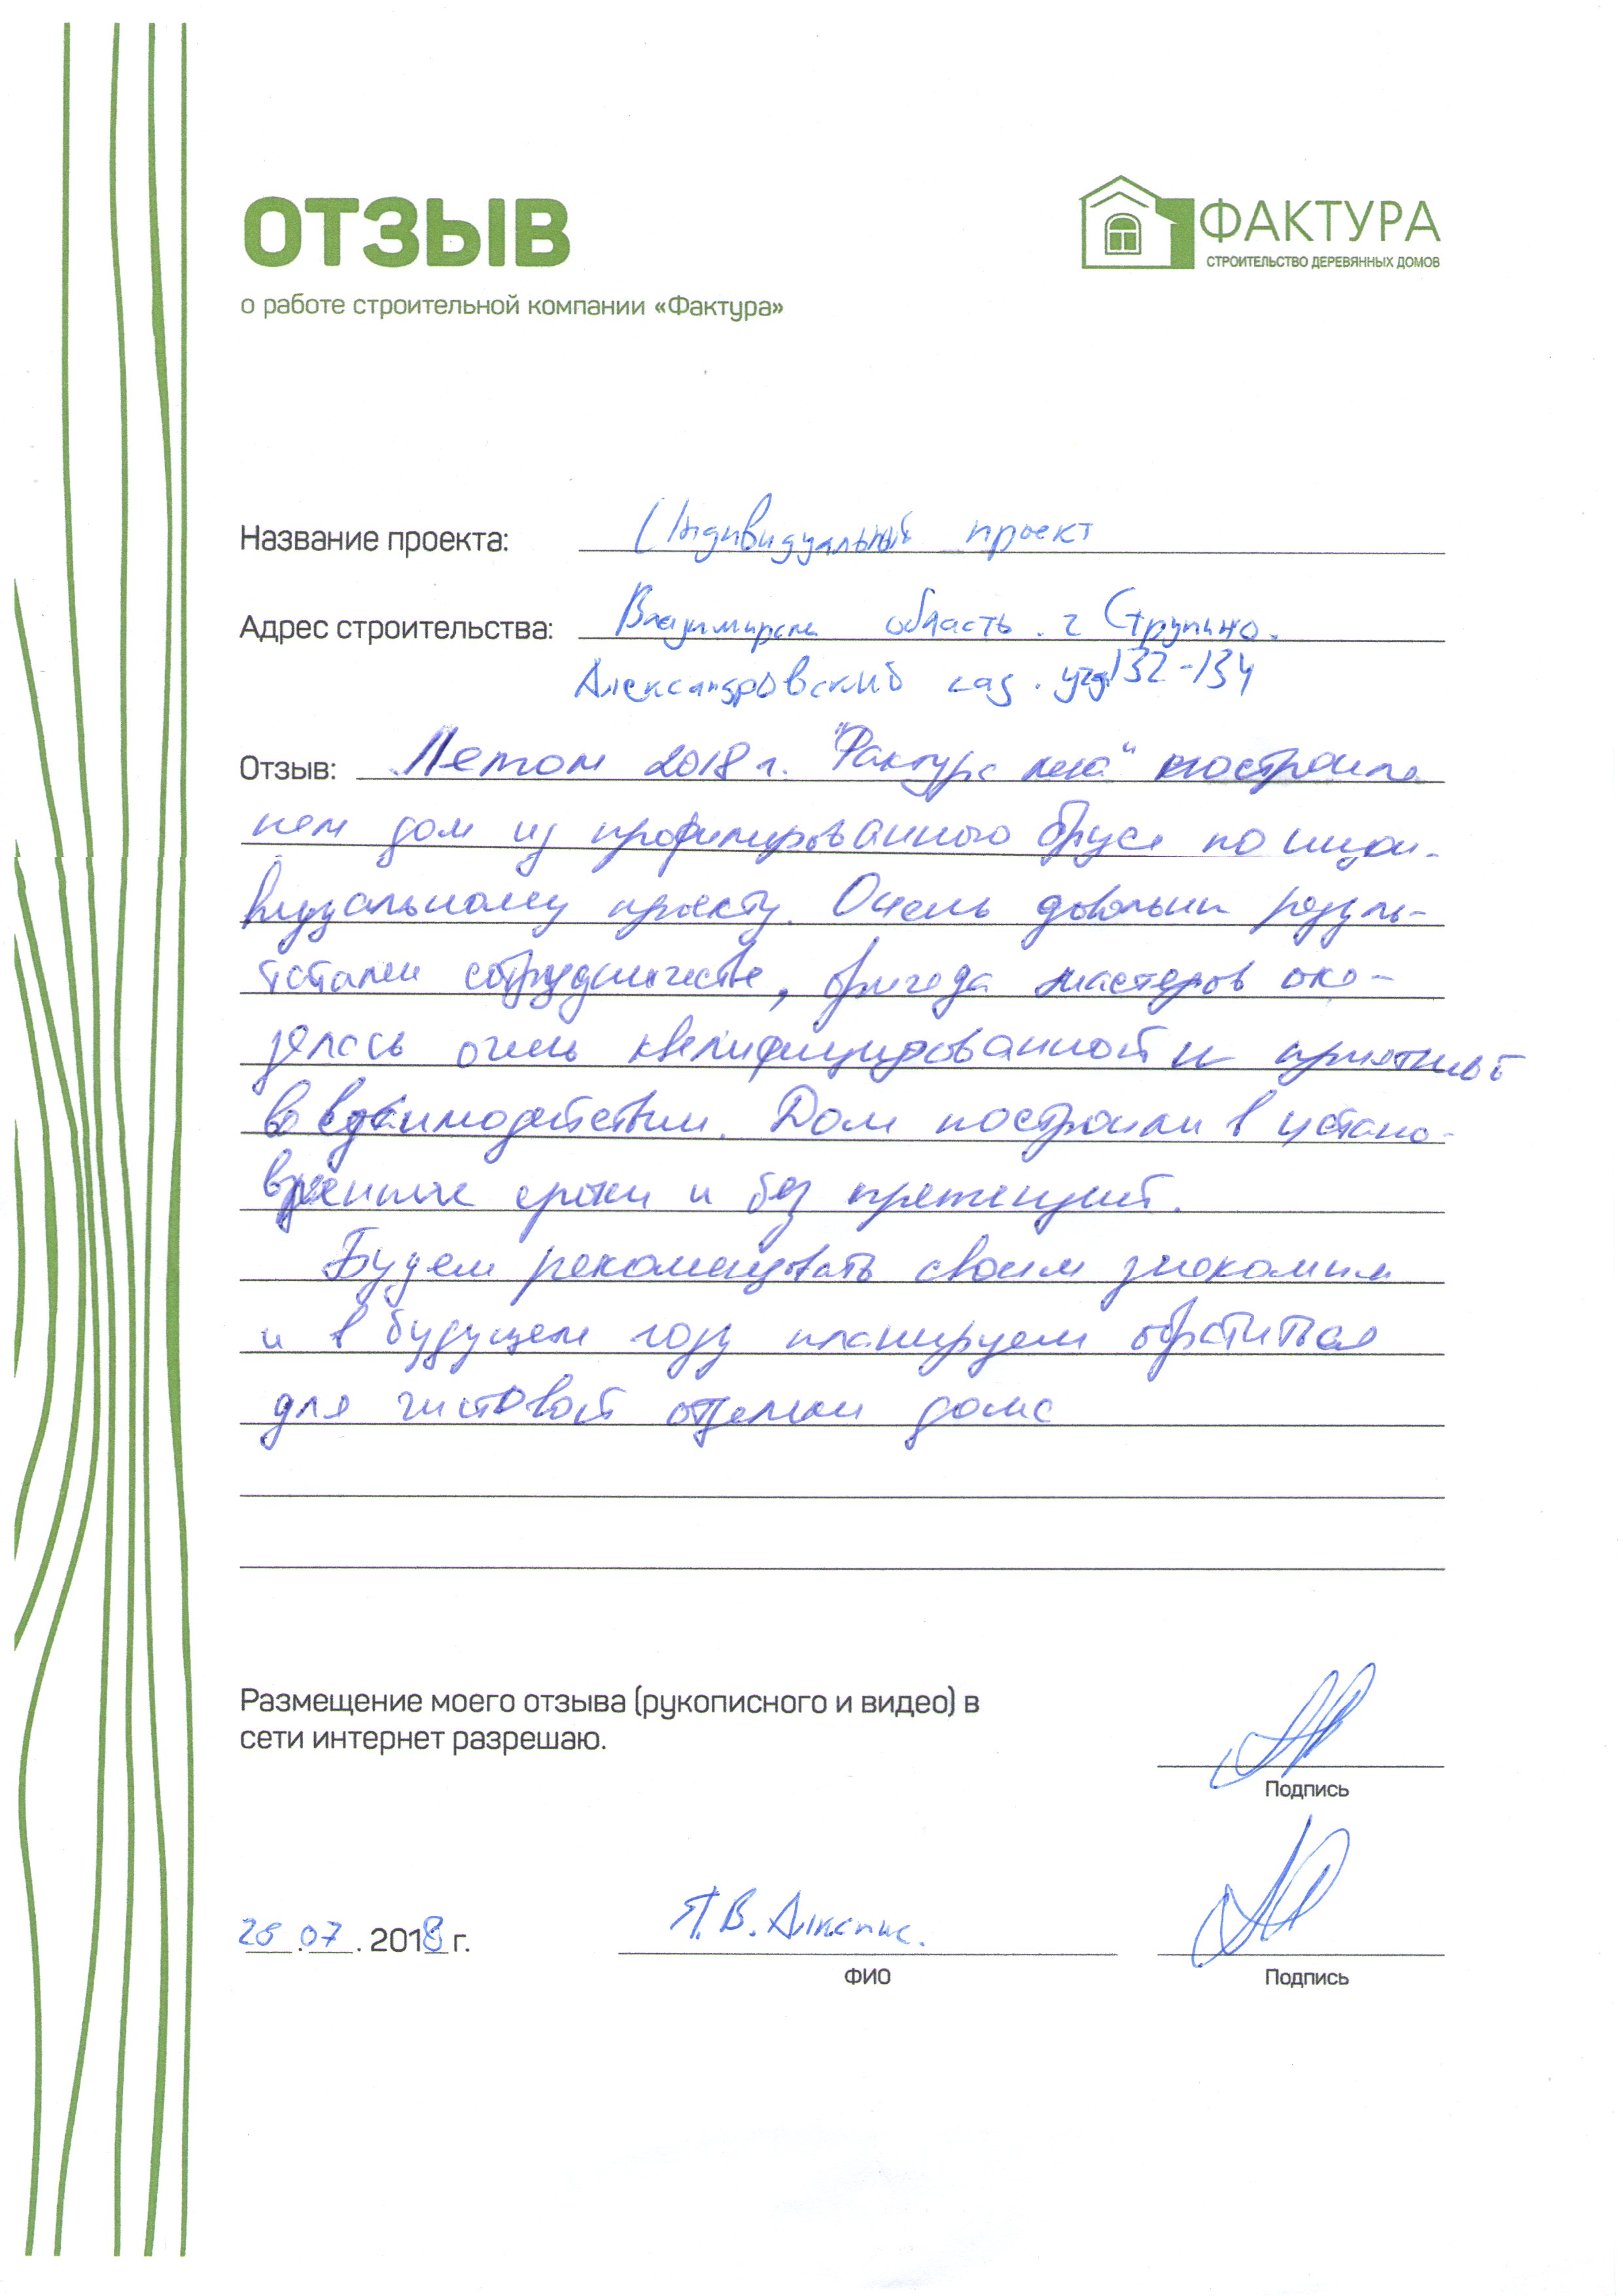 ОТЗЫВ
о работе строительной компании «Фактура»
ФАКТУРА
СТРОИТЕЛЬСТВО ДЕРЕВЯННЫХ ДОМОВ
Название проекта: Индивидуальный проект
Адрес строительства: область. г Струнино.
Александровский сад. 132-134
Отзыв: Летом 2018 г. "Фактура леса" построила
нам дом из профилированного бруса по инди-
видуальному проекту. Очень довольны резуль-
татами сотрудничества, бригада мастеров ока-
залась очень квалифицированной и приятной
во взаимодействии. Дом построили в устано-
вленные сроки и без претензий.
Будем рекомендовать своим знакомым
и в будущем году планируем обратиться
для чистовой отделки дома
Размещение моего отзыва (рукописного и видео) в
сети интернет разрешаю.
Подпись
.07.2018 г. П.В.
ФИО
Подпись